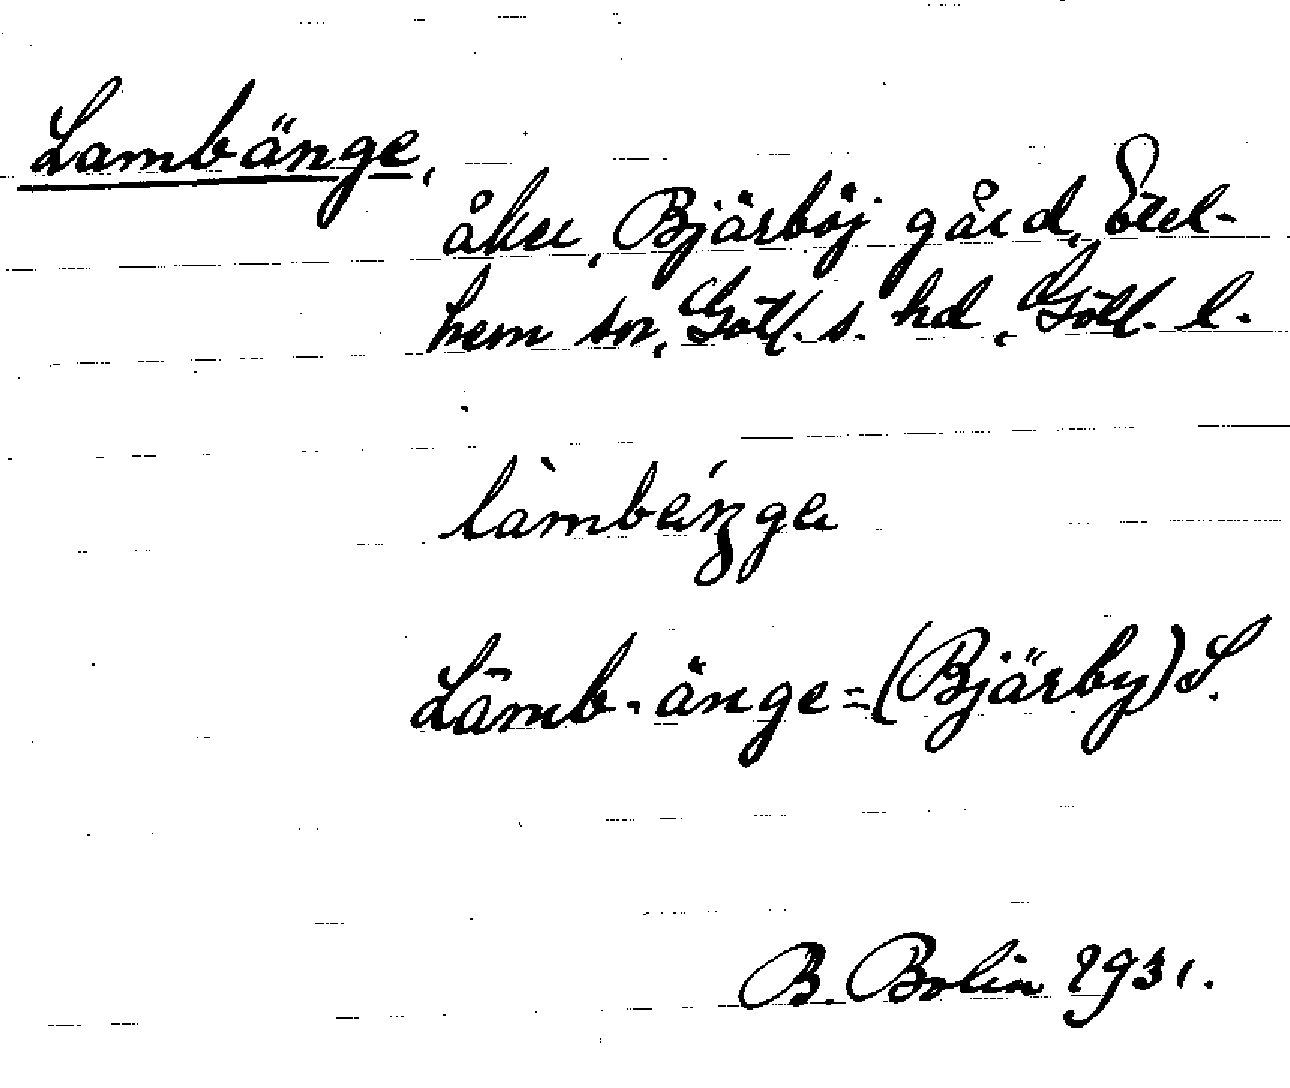 Lambänge,
åker, Bjärböj gård, Etel-
hem sn, Gotl. s. hd, Gotl. l.
Lamb-änge=(Bjärby) L.
B. Bolin 1931.